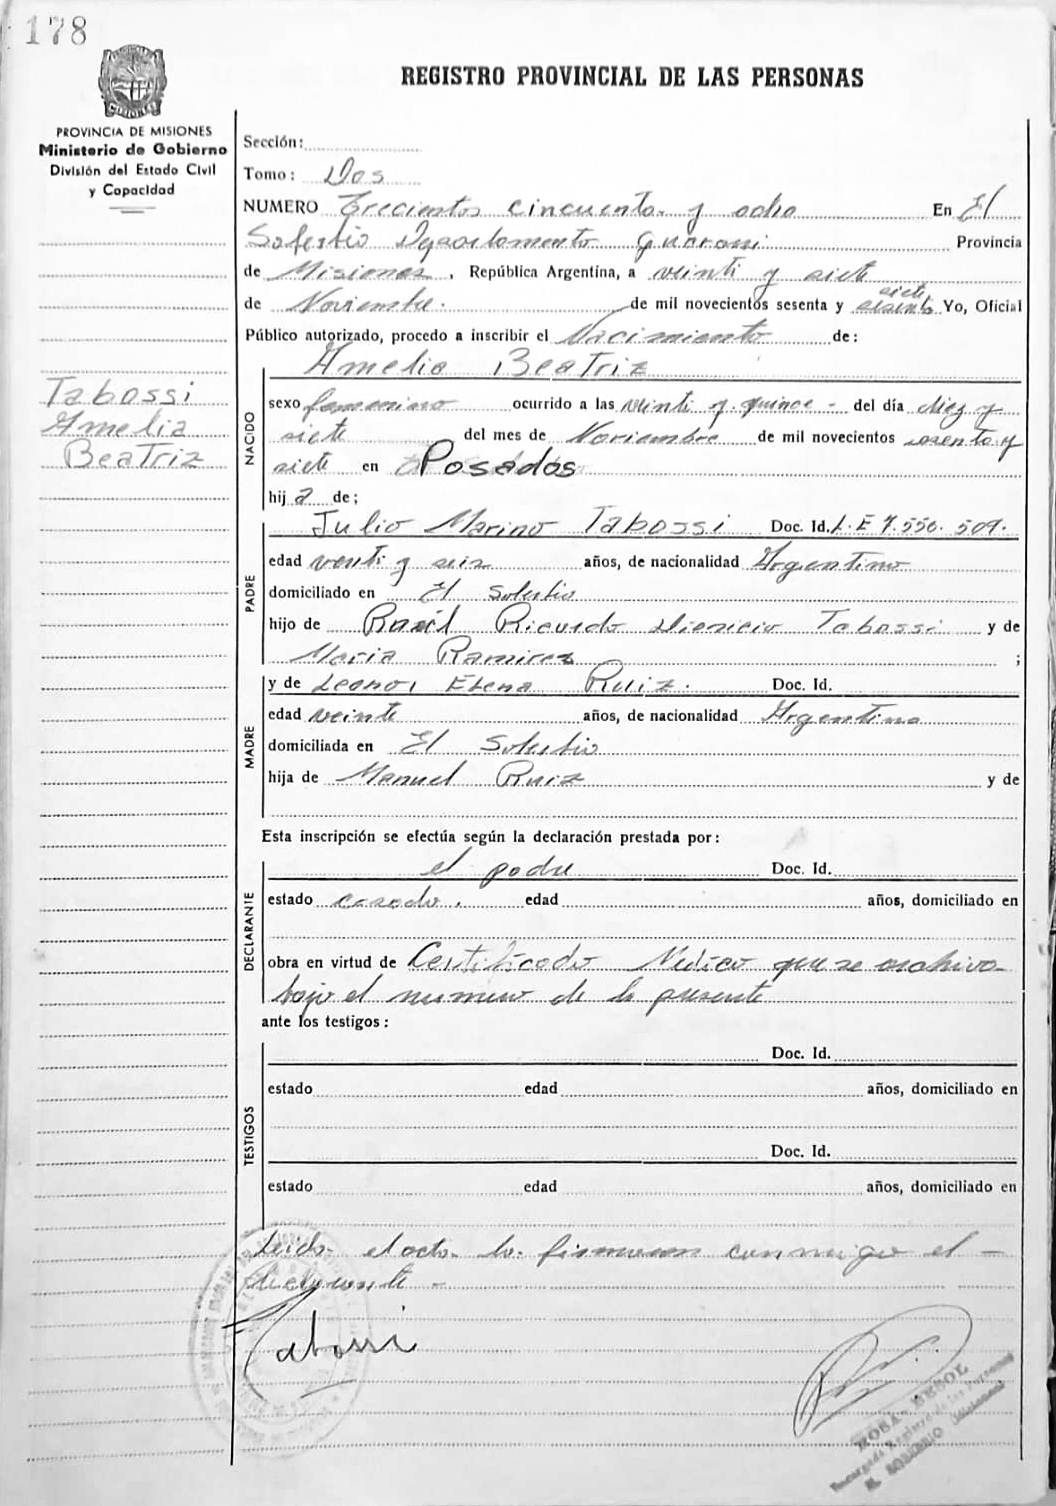 178
REGISTRO PROVINCIAL DE LAS PERSONAS
PROVINCIA DE MISIONES
Ministerio de Gobierno
División del Estado Civil
y Capacidad
Sección:
Tomo: Dos
NUMERO Trecientos cincuenta y ocho En El
Soberbio Departamento Guarani Provincia
de Misiones, República Argentina, a veinti y siete
de Noviembre de mil novecientos sesenta y siete Yo, Oficial
Público autorizado, procedo a inscribir el Nacimiento de:
Amelia Beatriz
Tabossi
Amelia
Beatriz
NACIDO
sexo femenino ocurrido a las veinti y quince - del día diez y
siete del mes de Noviembre de mil novecientos sesenta y
siete en Posadas
hija de;
PADRE
Julio Marino Tabossi Doc. Id. L. E 7.550.509.
edad venti y seis años, de nacionalidad Argentino
domiciliado en El Soberbio
hijo de Raúl Ricardo Dionicio Tabossi y de
Maria Ramirez ;
MADRE
y de Leonor Elena Ruiz. Doc. Id.
edad veinte años, de nacionalidad Argentina
domiciliada en El Soberbio
hija de Manuel Ruiz y de
Esta inscripción se efectúa según la declaración prestada por:
DECLARANTE
el padre Doc. Id.
estado casado. edad años, domiciliado en
obra en virtud de Certificado Medico que se archiva
bajo el numero de la presente
ante los testigos:
TESTIGOS
Doc. Id.
estado edad años, domiciliado en
Doc. Id.
estado edad años, domiciliado en
Leida el acta la firmaron conmigo el -
declarante -
Tabossi
ROSA BESOL
Encargada Registro de las Personas
EL SOBERBIO Misiones